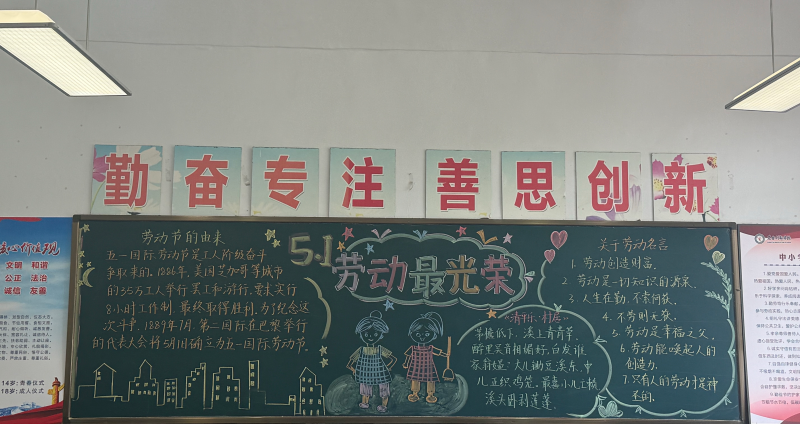 勤奋专注 善思创新
劳动节的由来
五一国际劳动节是工人阶级奋斗
争取来的。1886年，美国芝加哥等城市
的35万工人举行罢工和游行，要求实行
8小时工作制，最终取得胜利。为了纪念这
次斗争，1889年7月，第二国际在巴黎举行
的代表大会将5月1日确立为五一国际劳动节。
5.1
劳动最光荣
《清平乐·村居》
茅檐低下，溪上青青草。
醉里吴音相媚好，白发谁
家翁媪？大儿锄豆溪东，中
儿正织鸡笼。最喜小儿亡赖，
溪头卧剥莲蓬。
关于劳动名言
1. 劳动创造财富。
2. 劳动是一切知识的源泉。
3. 人生在勤，不索何获。
4. 不劳则无获。
5. 劳动是幸福之父。
6. 劳动能唤起人的
创造力。
7. 只有人的劳动才是神
圣的。
文明 和谐
公正 法治
诚信 友善
14岁：青春仪式
18岁：成人仪式
中小学